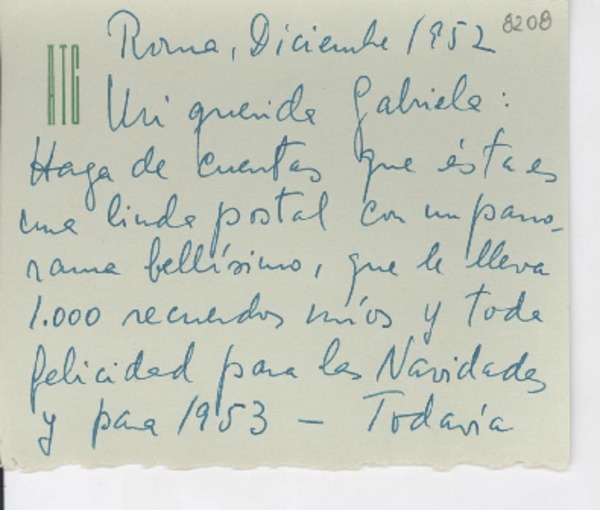 8208
Roma, Diciembre 1952
HTG
Mi querida Gabriela:
Haga de cuentas que ésta es
una linda postal con un pano-
rama bellísimo, que le lleva
1.000 recuerdos míos y toda
felicidad para las Navidades
y para 1953 — Todavía